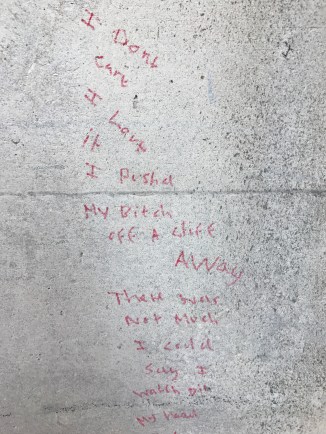 I Dont
care
I Love
it
I Pushd
My Bitch
off A cliff
AWay
There was
Not Much
I could
Say I
watch
My head